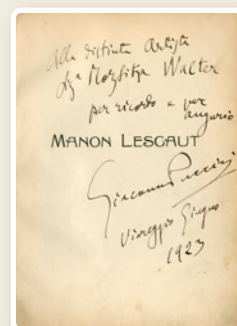 Alla distinta Artista
Sga Morbitza Walter
per ricordo e per
augurio
MANON LESCAUT
Giacomo Puccini
Viareggio Giugno
1923